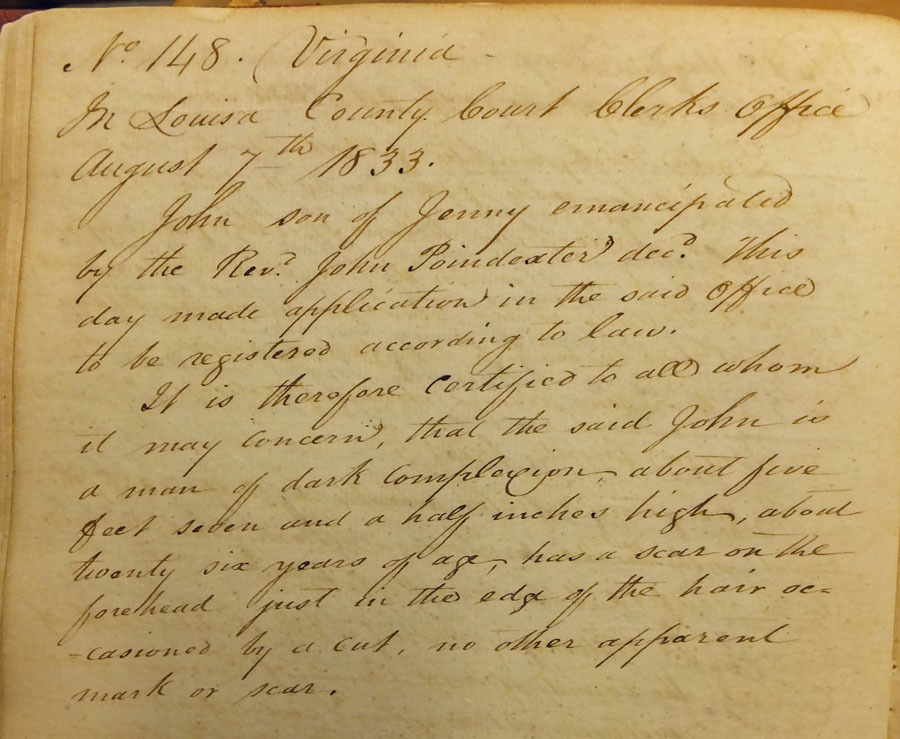 No. 148. Virginia -
In Louisa County Court Clerks Office
August 7th 1833.
John son of Jenny emancipated
by the Revd. John Poindexter decd. This
day made application in the said Office
to be registered according to law.
It is therefore Certified to all whom
it may Concern, that the said John is
a man of dark Complexion, about five
feet seven and a half inches high, about
twenty six years of age, has a scar on the
forehead just in the edge of the hair oc=
=casioned by a cut, no other apparent
mark or scar.